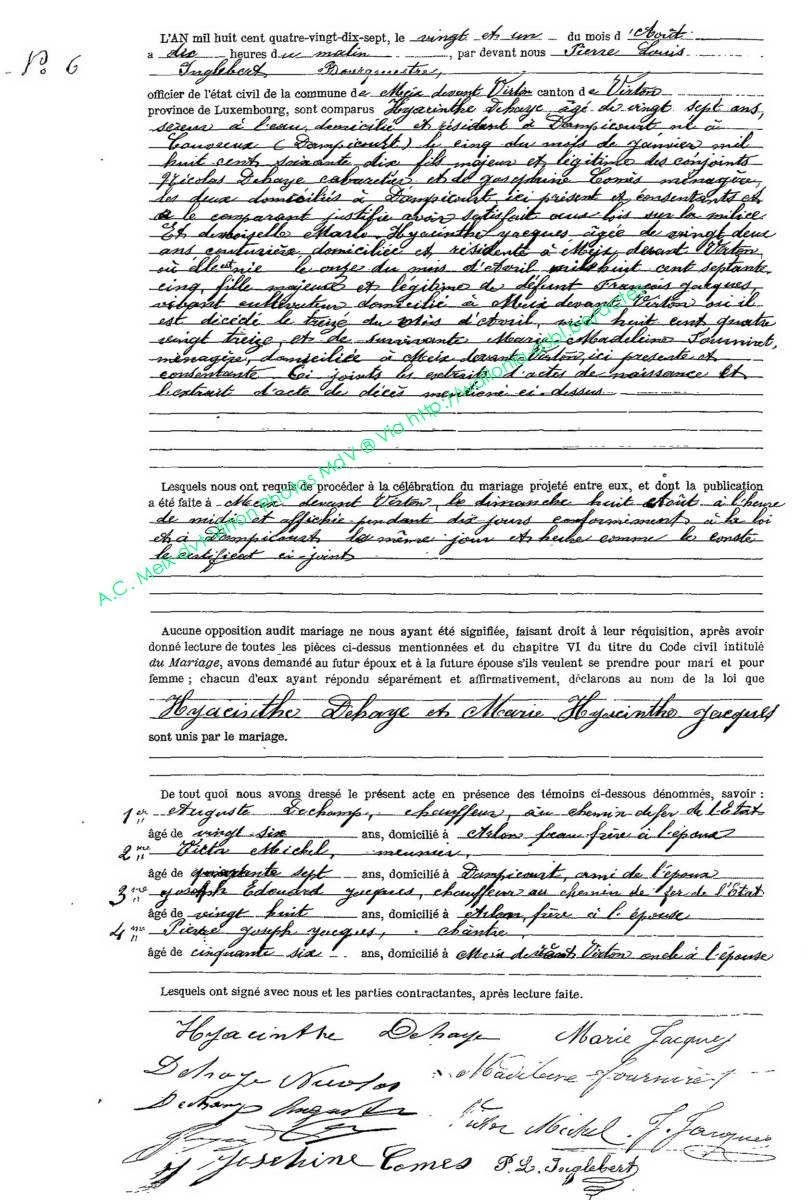 N.° 6
L'AN mil huit cent quatre-vingt-dix-sept, le vingt et un du mois d'Août
a dix heures du matin, par devant nous Pierre Louis
Inglebert Bourgmestre,
officier de l'état civil de la commune de Meix devant Virton canton de Virton
province de Luxembourg, sont comparus Hyacinthe Dehaye âgé de vingt sept ans,
à l'eau, domicilié et résidant à Dampicourt né à
Couvreux (Dampicourt) le cinq du mois de janvier mil
huit cent soixante dix fils majeur et légitime des conjoints
Nicolas Dehaye cabaretier et de Joséphine Comès ménagère,
les deux domiciliés à Dampicourt, ici présent et consentants et
le comparant justifie avoir satisfait aux lois sur la milice
Et demoiselle Marie Hyacinthe Jacques âgée de vingt deux
ans couturière, domiciliée et résidente à Meix devant Virton,
où elle est née le onze du mois d'Avril mil huit cent septante
cinq, fille majeure et légitime de défunt François Jacques,
vivant cultivateur domicilié à Meix devant Virton où il
est décédé le treize du mois d'Avril, mil huit cent quatre
vingt treize, et de survivante Marie Madeleine Fourniret,
ménagère, domiciliée à Meix devant Virton, ici présente et
consentante. Ci joints les extraits d'actes de naissance et
l'extrait d'acte de décès mentionné ci-dessus
Lesquels nous ont requis de procéder à la célébration du mariage projeté entre eux, et dont la publication
a été faite à Meix devant Virton, le dimanche huit Août à l'heure
de midi et affichée pendant dix jours conformément à la loi
et à Dampicourt le même jour et heure comme le conste
le certificat ci-joint
Aucune opposition audit mariage ne nous ayant été signifiée, faisant droit à leur réquisition, après avoir
donné lecture de toutes les pièces ci-dessus mentionnées et du chapitre VI du titre du Code civil intitulé
du Mariage, avons demandé au futur époux et à la future épouse s'ils veulent se prendre pour mari et pour
femme ; chacun d'eux ayant répondu séparément et affirmativement, déclarons au nom de la loi que
Hyacinthe Dehaye et Marie Hyacinthe Jacques
sont unis par le mariage.
De tout quoi nous avons dressé le présent acte en présence des témoins ci-dessous dénommés, savoir :
1er Auguste Dechamp, chauffeur, au chemin de fer de l'Etat
âgé de vingt six ans, domicilié à Arlon beau frère à l'époux
2me Victor Michel, meunier,
âgé de quarante sept ans, domicilié à Dampicourt, ami de l'époux
3me Joseph Edouard Jacques, chauffeur au chemin de fer de l'Etat
âgé de vingt huit ans, domicilié à Arlon, frère à l'épouse
4me Pierre Joseph Jacques, chantre
âgé de cinquante six ans, domicilié à Meix devant Virton oncle à l'épouse
Lesquels ont signé avec nous et les parties contractantes, après lecture faite.
Hyacinthe Dehaye Marie Jacques
Dehaye Nicolas Madeleine Fourniret
Dechamp Auguste
Victor Michel. J. Jacques
Joséhine Comes P. L. Inglebert
A.C. Meix dvt Virton Photos MdV ® Via http://wallonia-asbl.be/actes